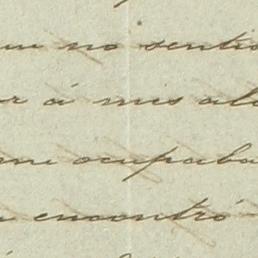 no sentis
á mis al
me ocupaba
encontró